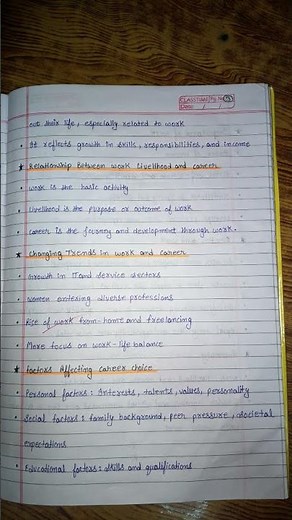 CLASSTIME Pg. No. 3
Date / /
out their life, especially related to work
• It reflects growth in skills, responsibilities, and income
★ Relationship Between work Livelihood and career
• work is the basic activity
• Livelihood is the purpose or outcome of work
• career is the journey and development through work.
★ Changing Trends in work and career
• Growth in IT and service sectors
• women entering diverse professions
• Rise of work from-home and freelancing
• More focus on work-life balance
★ Factors Affecting career choice
• Personal factors: Interests, talents, values, personality
• Social factors: family background, peer pressure, societal
expectations
• Educational factors: skills and qualifications